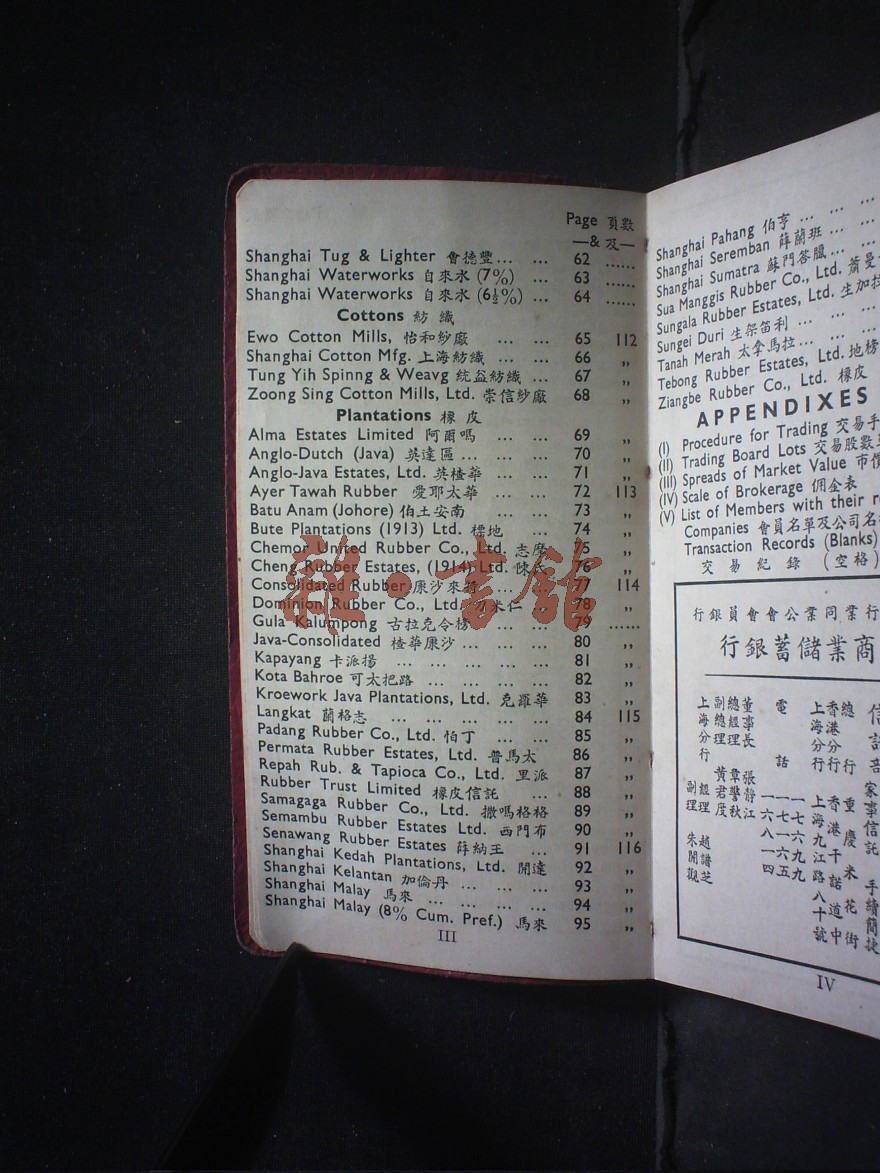 Page 頁數
—& 及—
Shanghai Tug & Lighter 會德豐... ... 62 ......
Shanghai Waterworks 自來水 (7%) ... 63 ......
Shanghai Waterworks 自來水 (6½%) ... 64 ......
Cottons 紡織
Ewo Cotton Mills, 怡和紗廠 ... ... 65 112
Shanghai Cotton Mfg. 上海紡織 ... ... 66 ,,
Tung Yih Spinng & Weavg 統益紡織 ... 67 ,,
Zoong Sing Cotton Mills, Ltd. 崇信紗廠 68 ,,
Plantations 橡皮
Alma Estates Limited 阿爾嗎 ... ... 69 ,,
Anglo-Dutch (Java) 英達區... ... 70 ,,
Anglo-Java Estates, Ltd. 英楂華 ... ... 71 ,,
Ayer Tawah Rubber 愛耶太華 ... ... 72 113
Batu Anam (Johore) 伯土安南 ... ... 73 ,,
Bute Plantations (1913) Ltd. 標地 ... 74 ,,
Chemor United Rubber Co., Ltd. 志摩 75 ,,
Cheng Rubber Estates, (1914) Ltd. 陳氏 76 ,,
Consolidated Rubber 康沙來特 ... ... 77 114
Dominion Rubber Co., Ltd. 米仁 78 ,,
Gula Kalumpong 古拉克令榜 ... ... 79 ......
Java-Consolidated 楂華康沙... ... ... 80 ,,
Kapayang 卡派揚 ... ... ... ... 81 ,,
Kota Bahroe 可太把路 ... ... ... 82 ,,
Kroework Java Plantations, Ltd. 克羅華 83 ,,
Langkat 蘭格志 ... ... ... ... 84 115
Padang Rubber Co., Ltd. 怕丁 ... ... 85 ,,
Permata Rubber Estates, Ltd. 普馬太 86 ,,
Repah Rub. & Tapioca Co., Ltd. 里派 87 ,,
Rubber Trust Limited 橡皮信託 ... ... 88 ,,
Samagaga Rubber Co., Ltd. 撒嗎格格 89 ,,
Semambu Rubber Estates Ltd. 西門布 90 ,,
Senawang Rubber Estates 薛納王 ... 91 116
Shanghai Kedah Plantations, Ltd. 開達 92 ,,
Shanghai Kelantan 加倫丹 ... ... ... 93 ,,
Shanghai Malay 馬來 ... ... ... ... 94 ,,
Shanghai Malay (8% Cum. Pref.) 馬來 95 ,,
III
Shanghai Pahang 伯亨 ... ... ...
Shanghai Seremban 薛蘭班... ...
Shanghai Sumatra 蘇門答臘... ...
Sua Manggis Rubber Co., Ltd. 蕭曼
Sungala Rubber Estates, Ltd. 生加拉
Sungei Duri 生架笛利 ... ... ...
Tanah Merah 太拿馬拉... ... ...
Tebong Rubber Estates, Ltd. 地榜
Ziangbe Rubber Co., Ltd. 橡皮
APPENDIXES
(I) Procedure for Trading 交易手
(II) Trading Board Lots 交易股數
(III) Spreads of Market Value 市價
(IV) Scale of Brokerage 佣金表
(V) List of Members with their
Companies 會員名單及公司名
Transaction Records (Blanks)
交易紀錄 (空格)
行銀員會會公業同業行
行銀蓄儲業商
信託部
家事信託 手續簡捷
總行 重慶米花街
香港分行 香港干諾道中
上海分行 上海九江路八十號
電話 一七六九九
一一六五
一六八一四
董事長 張靜江
總經理 章警秋
副總理 黃君度
上海分行 經理 趙譜芝
副理 朱開觀
IV
雜·書館